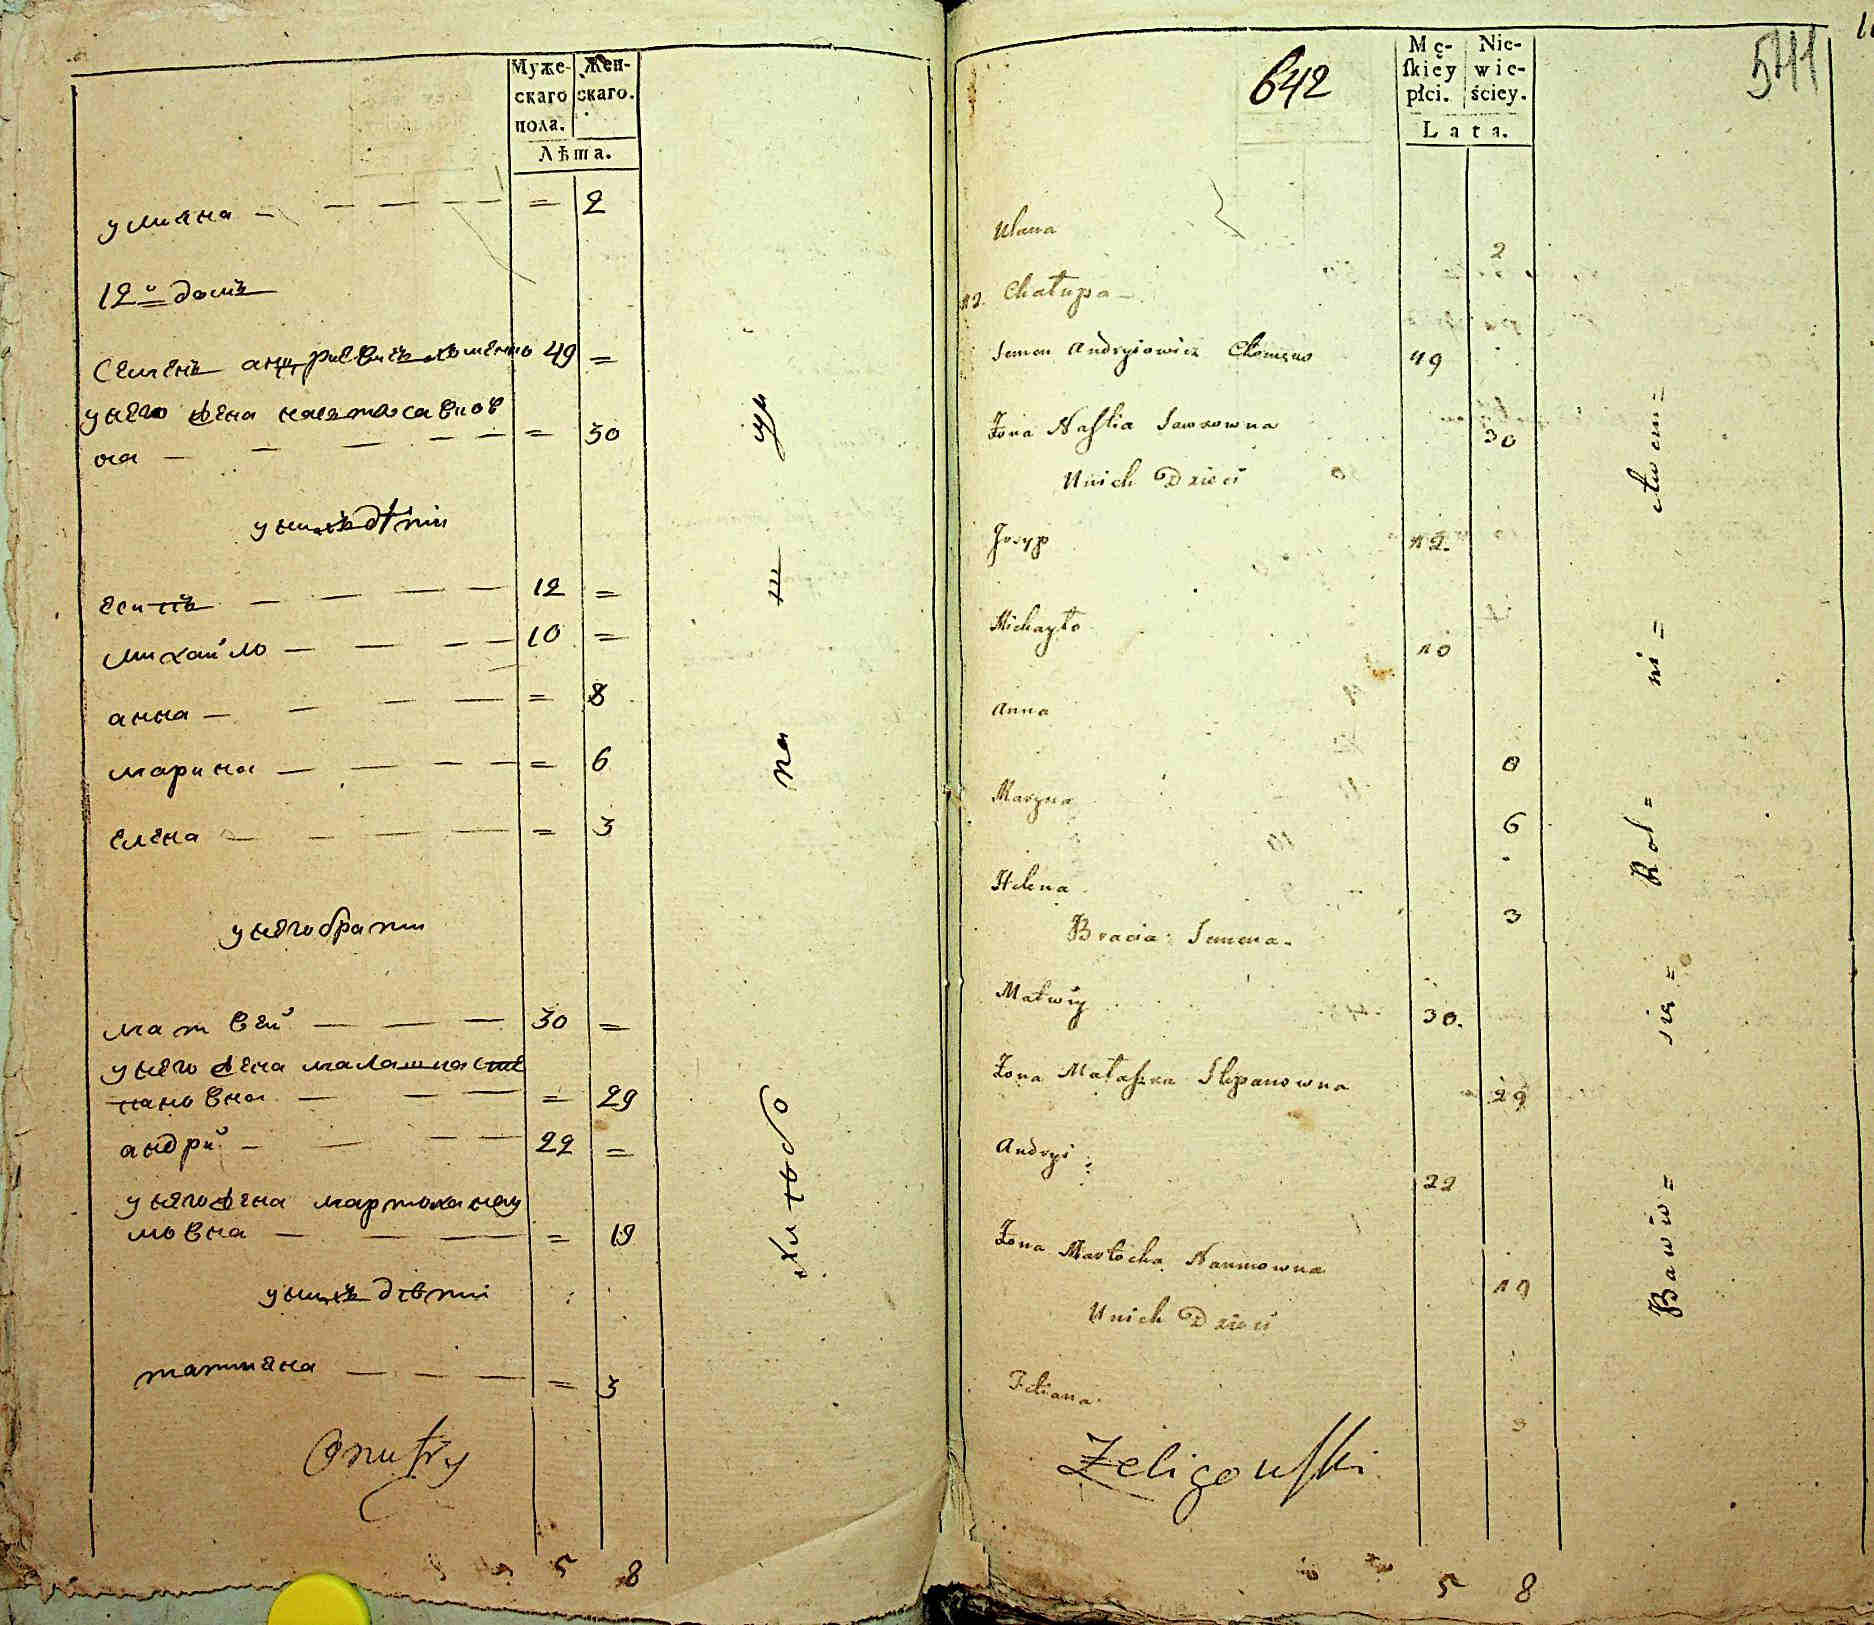 Муже-
скаго
пола.
Жен-
скаго.
Лѣта.
улияна — = 2
12й домъ
Семенъ андриевичъ хоменко 49 =
унего жена настя савков
на — = 30
унихъ дѣти
есипъ — 12 =
михайло — 10 =
анна — = 8
марина — = 6
елена — = 3
унего брати
матвей — 30 =
унего жена малашка сте
пановна — = 29
андрий — 22 =
унего жена мартоха нау
мовна — = 19
унихъ дѣти
татияна — = 3
Onufry
5 8
642
541
Mę-
skiéy
płci.
Nie-
wie-
ściey.
Lata.
Ulana 2
12. Chałupa —
Semen Andryiowicz Chomęno 49
Żona Nastia Sawkowna 30
Unich Dzieci
Josyp 12.
Michayło 10
Anna 8
Maryna 6
Helena 3
Bracia Semena.
Matwiy 30.
Żona Małaszka Stepanowna 29
Andryi 22
Żona Martocha Naumowna 19
Unich Dzieci
Tetiana 3
Żeligowski
Bawiw= się= Rol= ni= ctwem=
5 8